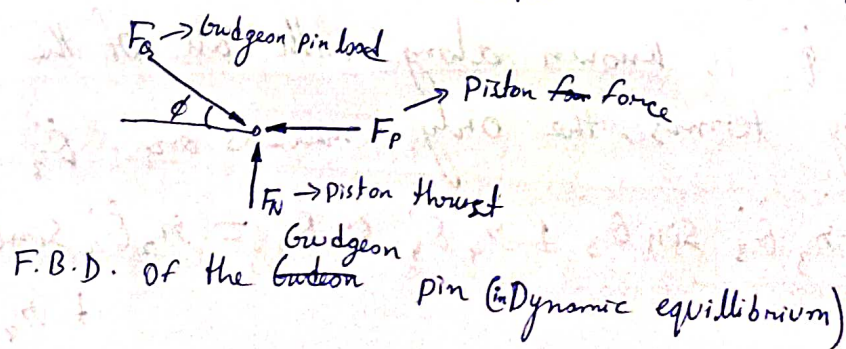 F_Q → Gudgeon pin load
φ
→ Piston force
F_P
F_N → Piston thrust
Gudgeon
F.B.D. of the pin (in Dynamic equillibrium)